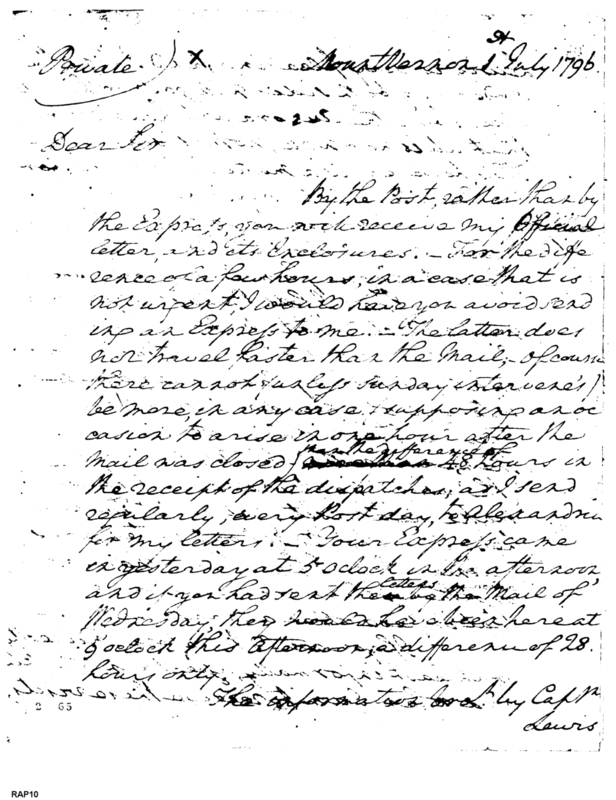 Private
Mount Vernon 1st July 1796
Dear Sir
By the Post, rather than by
the Express, you will receive my Official
letter, and its Enclosures. – For the diffe
rence of a few hours, in a case that is
not urgent I would have you avoid send
ing an Express to me. – The latter does
not travel faster than the Mail, – of course
there cannot (unless Sunday intervenes)
be more, in any case, supposing an oc
casion to arise in one hour after the
Mail was closed, than the difference of
48 hours in
the receipt of the dispatches; as I send
regularly, every Post day, to Alexandria
for my letters. – Your Express came
in yesterday at 5 oclock in the afternoon
and if you had sent the letters by the Mail of
Wednesday, they would have been here at
9 oclock this afternoon, a difference of 28
hours only.
The information brot. by Captn
Lewis
2 65
RAP10